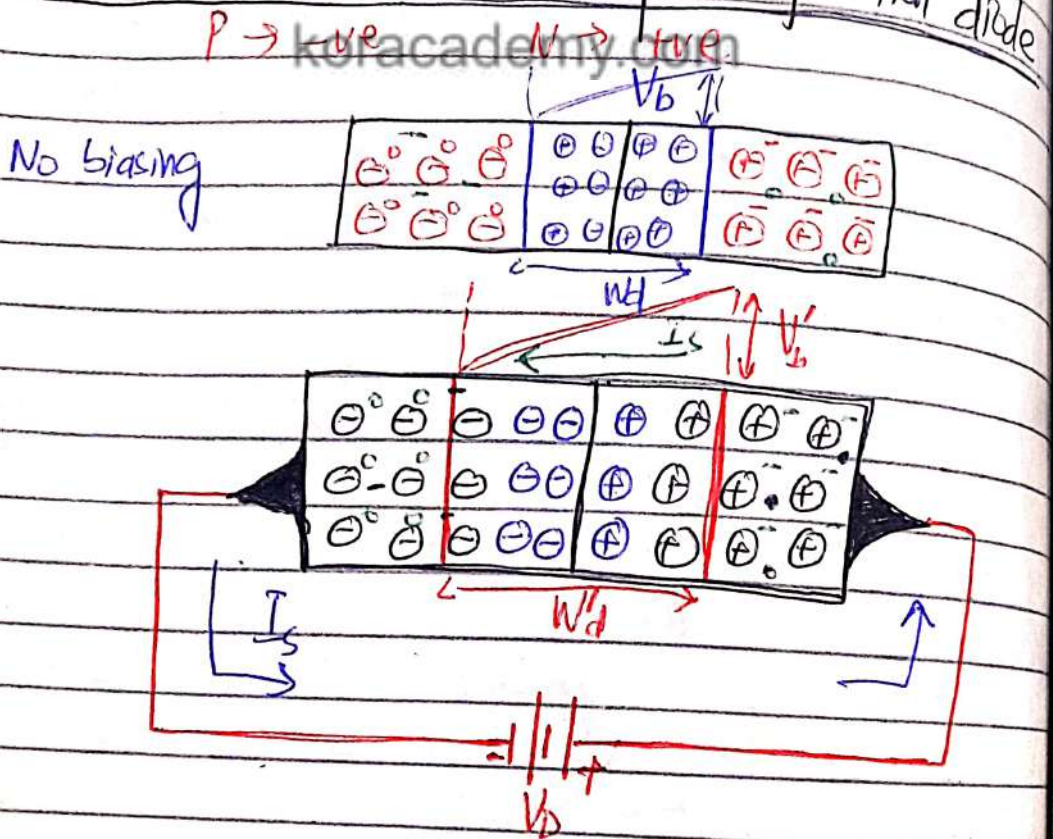 diode
P → -ve N → +ve
koracademy.com
Vb
No biasing
Wd
Is
V'b
W'd
Is
- +
VD